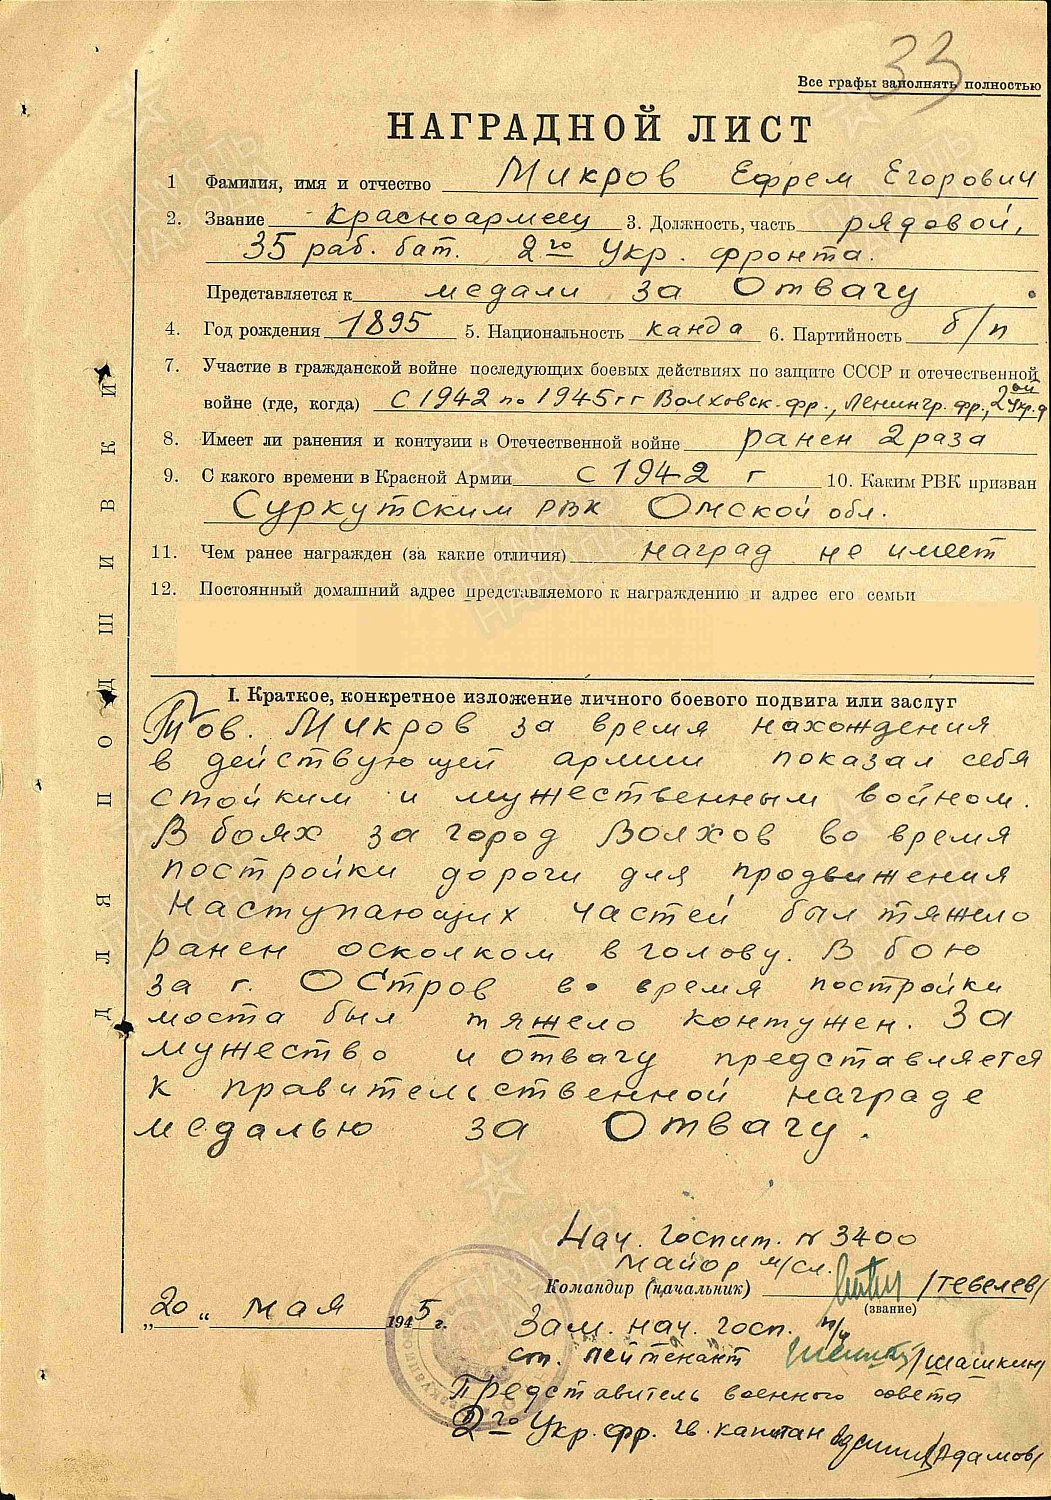 33
Все графы заполнять полностью
НАГРАДНОЙ ЛИСТ
1 Фамилия, имя и отчество Микров Ефрем Егорович
2. Звание Красноармеец 3. Должность, часть рядовой,
35 раб. бат. 2го Укр. фронта.
Представляется к медали за Отвагу
4. Год рождения 1895 5. Национальность канда 6. Партийность б/п
7. Участие в гражданской войне последующих боевых действиях по защите СССР и отечественной
войне (где, когда) с 1942 по 1945 гг Волховск. фр., Ленингр. фр., 2ой Укр. ф
8. Имеет ли ранения и контузии в Отечественной войне ранен 2 раза
9. С какого времени в Красной Армии с 1942 г 10. Каким РВК призван
Суркутским РВК Омской обл.
11. Чем ранее награжден (за какие отличия) наград не имеет
12. Постоянный домашний адрес представляемого к награждению и адрес его семьи
ДЛЯ ПОДШИВКИ
I. Краткое, конкретное изложение личного боевого подвига или заслуг
Тов. Микров за время нахождения
в действующей армии показал себя
стойким и мужественным войном.
В боях за город Волхов во время
постройки дороги для продвижения
наступающих частей был тяжело
ранен осколком в голову. В бою
за г. Остров во время постройки
моста был тяжело контужен. За
мужество и отвагу представляется
к правительственной награде
медалью за Отвагу.
Нач. госпит. N 3400
майор м/сл.
Командир (начальник) /Тевелев/
(звание)
„20“ мая 1945 г.
Зам. нач. госп. п/ч
ст. лейтенант /Шашкин/
Представитель военного совета
2го Укр. фр. гв. капитан /Адамов/